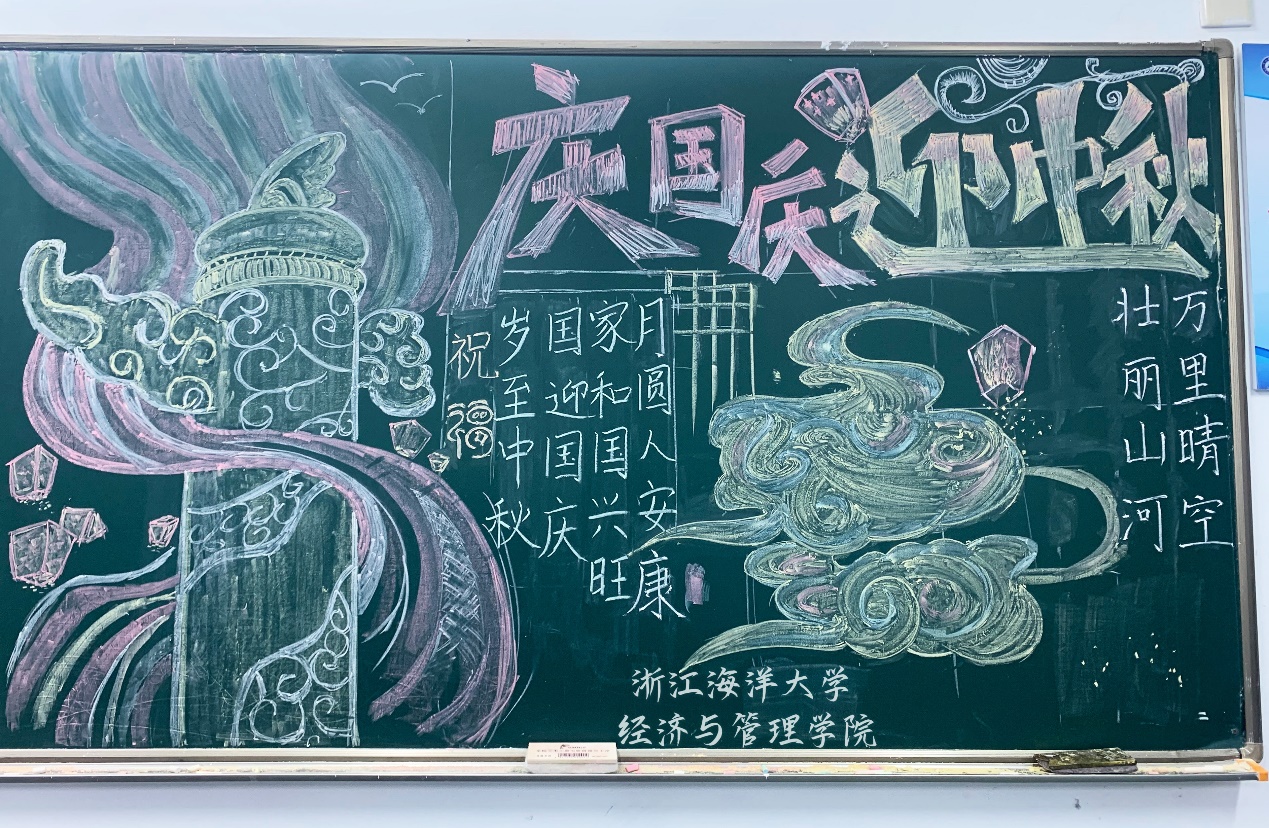 庆国庆迎中秋
万里晴空
壮丽山河
月圆人安康
家和国兴旺
国迎国庆
岁至中秋
祝福
浙江海洋大学
经济与管理学院